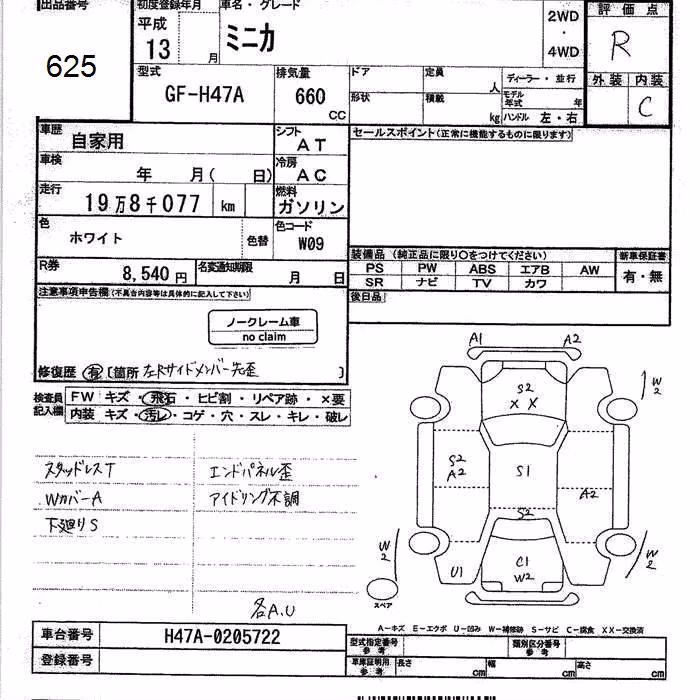 出品番号
625
初度登録年月
平成
13 月
車名・グレード
ミニカ
2WD
・
4WD
評価点
R
外装 内装
C
型式
GF-H47A
排気量
660
CC
ドア
定員
人
形状
積載
kg
ディーラー・並行
モデル
年式 年
ハンドル 左・右
車歴
自家用
シフト
AT
車検
年 月( 日)
冷房
AC
走行
19万8千077 km
燃料
ガソリン
色
ホワイト
色替
色コード
W09
R券
8,540 円
名変通知期限
月 日
セールスポイント(正常に機能するものに限ります)
装備品 (純正品に限り〇をつけてください)
新車保証書
PS PW ABS エアB AW
SR ナビ TV カワ
有・無
後日品
注意事項申告欄(不具合内容等は具体的に記入して下さい)
ノークレーム車
no claim
修復歴 有 〔箇所 左Rサイドメンバー先歪 〕
検査員
記入欄
FW キズ・飛石・ヒビ割・リペア跡・×要
内装 キズ・汚レ・コゲ・穴・スレ・キレ・破レ
スタッドレスT
WカバーA
下廻りS
エンドパネル歪
アイドリング不調
各A.U
A1
A2
S2
X X
W2
S2
A2
S1
A2
S2
W2
U1
C1
W2
W2
スペア
A－キズ E－エクボ U－凹み W－補修跡 S－サビ C－腐食 XX－交換済
車台番号
H47A-0205722
登録番号
型式指定番号
参考
類別区分番号
参考
車庫証明用
参考
長さ cm
幅 cm
高さ cm